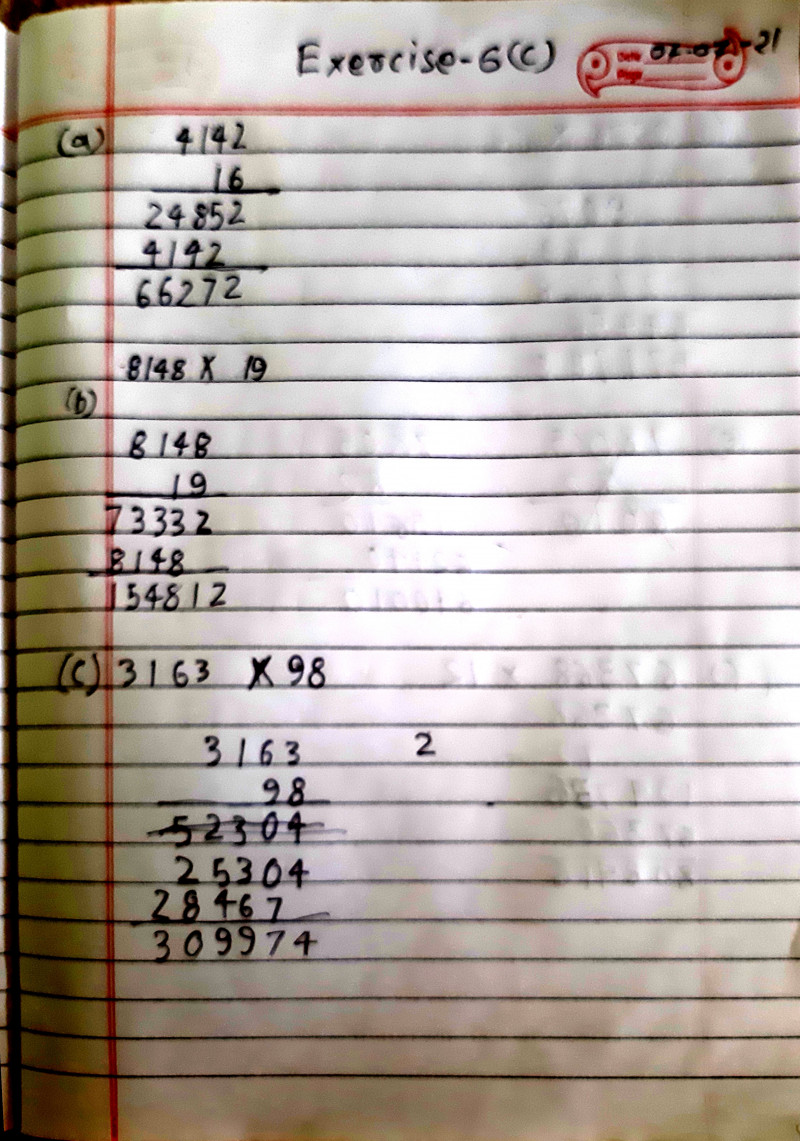 Exercise-6(C)
Date
Page
(a) 4142
16
24852
4142
66272
8148 X 19
(b)
8148
19
73332
8148
154812
(C) 3163 X 98
3163 2
98
52304
25304
28467
309974